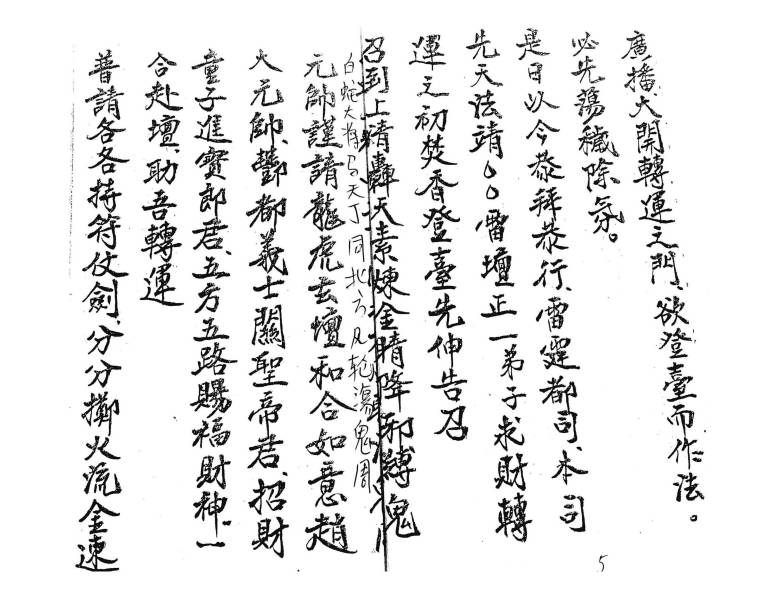 廣播大開轉運之門、欲登臺而作法。
必先蕩穢除氛。
是日以今恭拜恭行、雷霆都司、本司
先天法靖〇〇雷壇正一弟子求財轉
運之初焚香登臺先伸告召
召到上精轟天素煉金睛降邪縛鬼
白蛇大將馬天丁同北方 蕩鬼周
元帥謹請龍虎玄壇和合如意趙
大元帥、酆都義士關聖帝君、招財
童子進寶郎君、五方五路賜福財神、一
合赴壇、助吾轉運
普請各各持符仗劍、分分擲火流金速
5